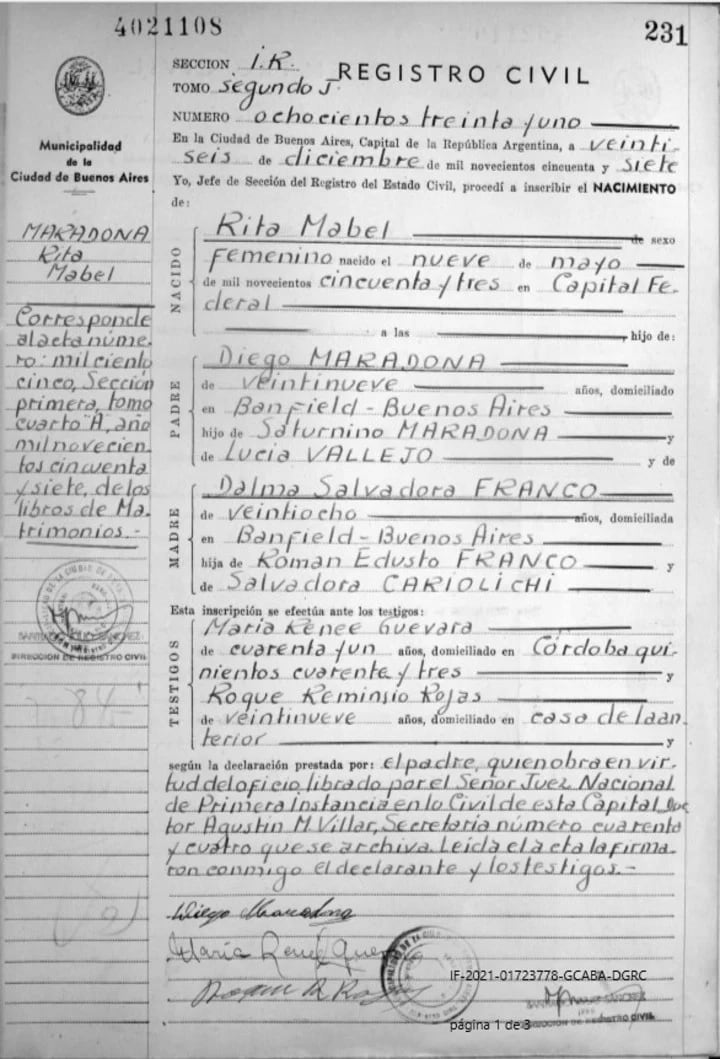 4021108
231
SECCION 1.R.
REGISTRO CIVIL
TOMO segundo J
NUMERO ochocientos treinta y uno
En la Ciudad de Buenos Aires, Capital de la República Argentina, a veinti
seis de diciembre de mil novecientos cincuenta y siete
Yo, Jefe de Sección del Registro del Estado Civil, procedí a inscribir el NACIMIENTO
de:
Municipalidad
de la
Ciudad de Buenos Aires
MARADONA
Rita
Mabel
Corresponde
al acta núme-
ro: mil ciento
cinco, Sección
primera, tomo
cuarto "A", año
mil novecien-
tos cincuenta
y siete, de los
libros de Ma-
trimonios.-
DIRECCION DE REGISTRO CIVIL
84-
NACIDO
Rita Mabel de sexo
femenino nacido el nueve de mayo
de mil novecientos cincuenta y tres en Capital Fe-
deral
a las hijo de:
PADRE
Diego MARADONA
de veintinueve años, domiciliado
en Banfield - Buenos Aires
hijo de Saturnino MARADONA y
de Lucia VALLEJO y de
MADRE
Dalma Salvadora FRANCO
de veintiocho años, domiciliada
en Banfield - Buenos Aires
hija de Roman Edusto FRANCO y
de Salvadora CARIOLICHI
Esta inscripción se efectúa ante los testigos:
TESTIGOS
Maria Renee Guevara
de cuarenta y un años, domiciliado en Córdoba qui-
nientos cuarenta y tres y
Roque Reminsio Rojas
de veintinueve años, domiciliado en casa de la an-
terior y
según la declaración prestada por: el padre, quien obra en vir-
tud del oficio librado por el Señor Juez Nacional
de Primera Instancia en lo Civil de esta Capital Doc
tor Agustin M. Villar, Secretaria número cuarenta
y cuatro que se archiva. Leída el acta la firma-
ron conmigo el declarante y los testigos.-
Diego Maradona
María Reneé Guev
Roque R. Rojas
IF-2021-01723778-GCABA-DGRC
página 1 de 3
DIRECCION DE REGISTRO CIVIL